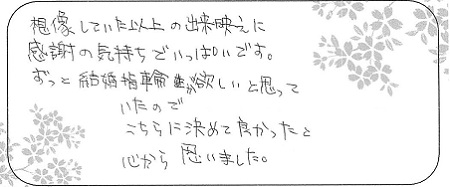 想像していた以上の出来映えに
感謝の気持ちでいっぱいです。
ずっと結婚指輪が欲しいと思って
いたので
こちらに決めて良かったと
心から思いました。